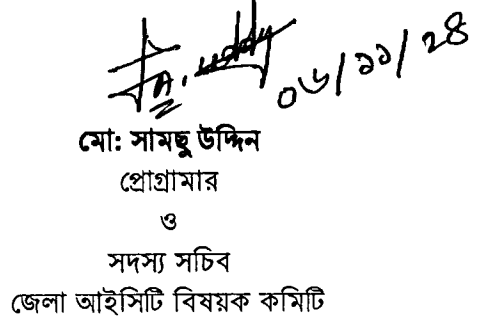 ০৬/১১/২৪
মো: সামছু উদ্দিন
প্রোগ্রামার
ও
সদস্য সচিব
জেলা আইসিটি বিষয়ক কমিটি